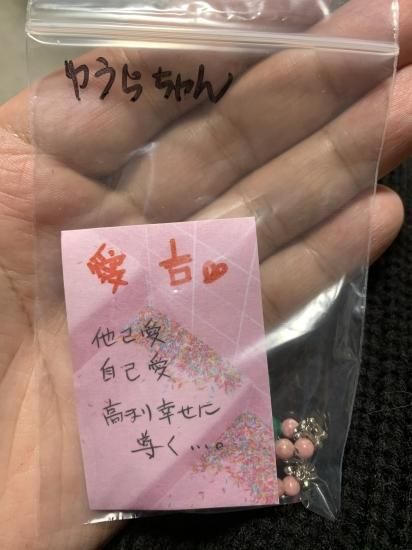 ゆうらちゃん
愛 吉♡
他己愛
自己愛
高まり幸せに
導く…。